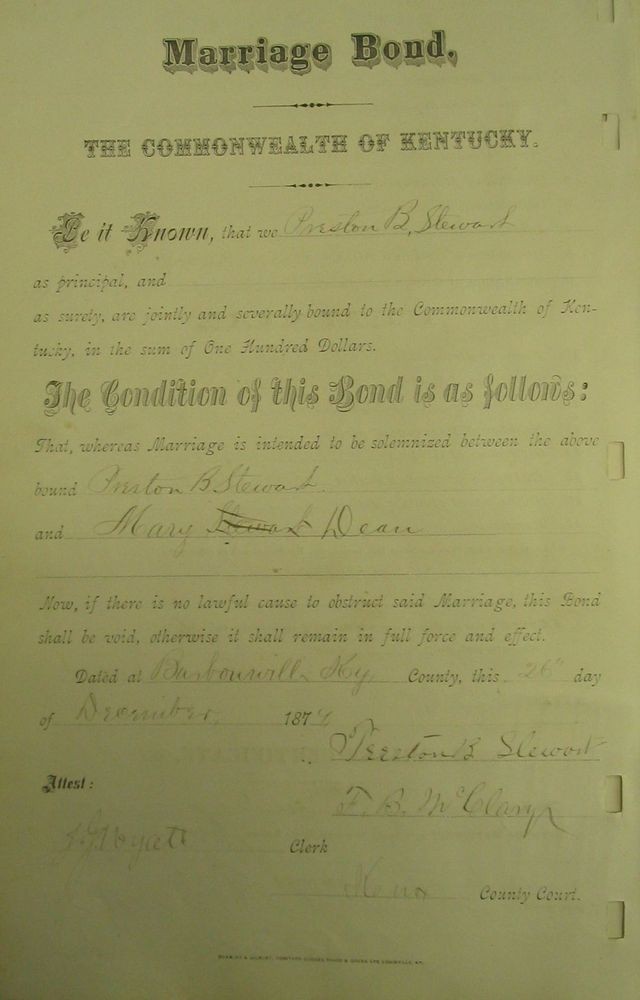 Marriage Bond.
THE COMMONWEALTH OF KENTUCKY.
Be it Known, that we Preston B. Stewart
as principal, and
as surety, are jointly and severally bound to the Commonwealth of Ken-
tucky, in the sum of One Hundred Dollars.
The Condition of this Bond is as follows:
That, whereas Marriage is intended to be solemnized between the above
bound Preston B Stewart.
and Mary Stewart Dean
Now, if there is no lawful cause to obstruct said Marriage, this Bond
shall be void, otherwise it shall remain in full force and effect.
Dated at Barbourville Ky County, this 26" day
of December 187
Preston B Stewart
Attest:
F. B. McClary
Wyatt Clerk
Knox County Court.